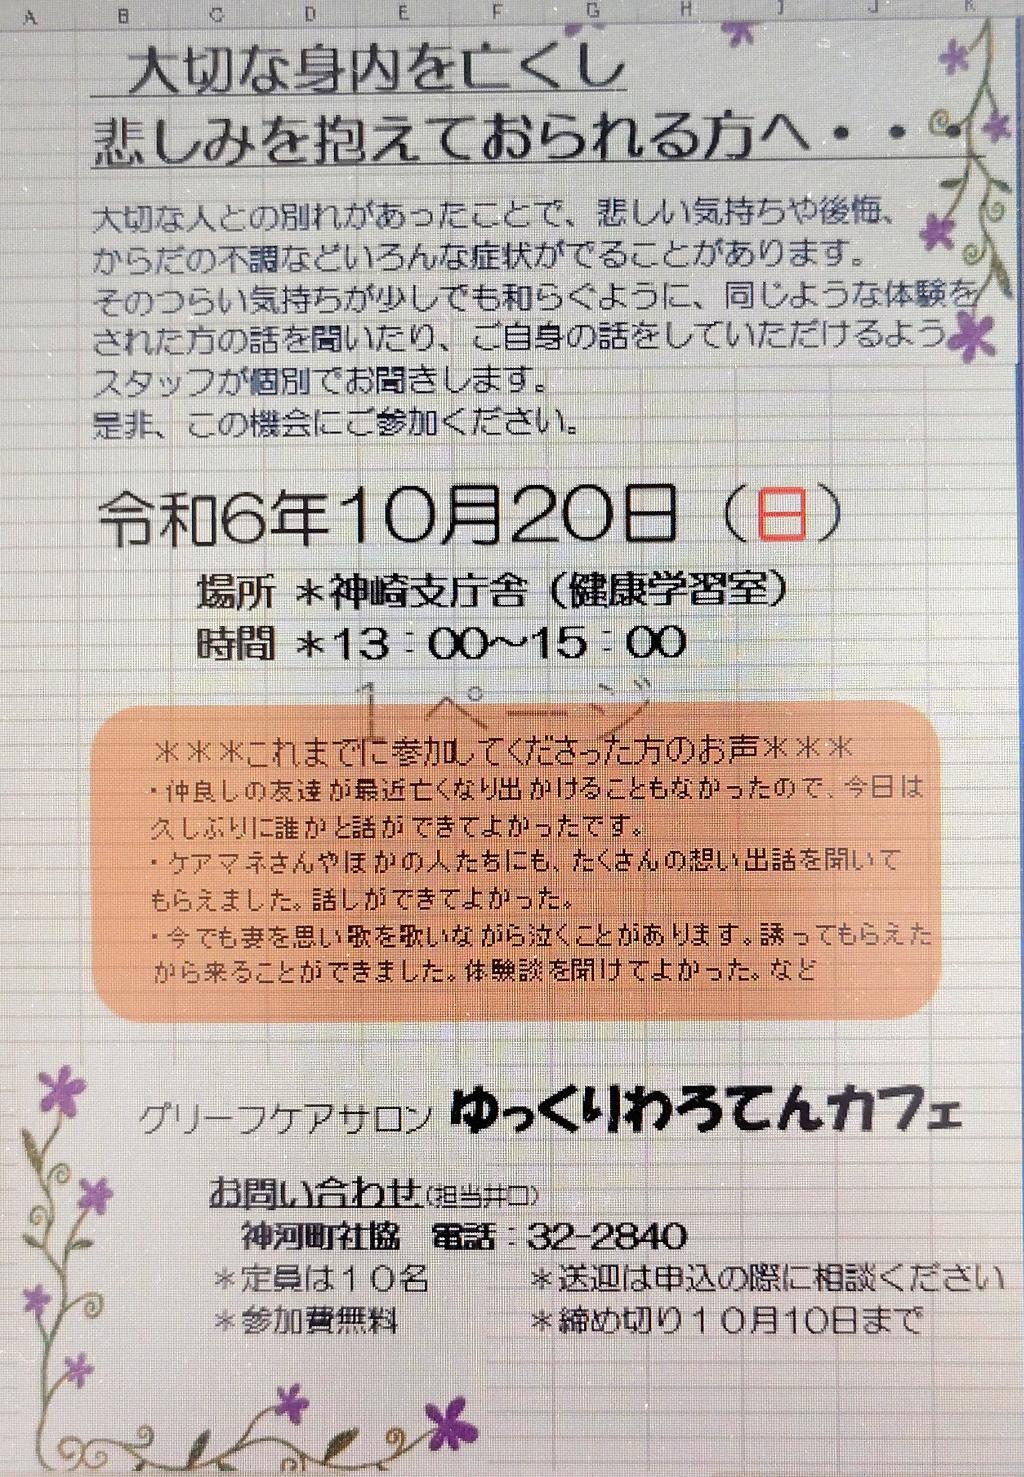 A B C D E F G H I J K
大切な身内を亡くし
悲しみを抱えておられる方へ・・・
大切な人との別れがあったことで、悲しい気持ちや後悔、
からだの不調などいろんな症状がでることがあります。
そのつらい気持ちが少しでも和らぐように、同じような体験を
された方の話を聞いたり、ご自身の話をしていただけるよう
スタッフが個別でお聞きします。
是非、この機会にご参加ください。
令和6年10月20日（日）
場所 ＊神崎支庁舎（健康学習室）
時間 ＊13：00～15：00
1 ページ
＊＊＊これまでに参加してくださった方のお声＊＊＊
・仲良しの友達が最近亡くなり出かけることもなかったので、今日は
久しぶりに誰かと話ができてよかったです。
・ケアマネさんやほかの人たちにも、たくさんの想い出話を聞いて
もらえました。話しができてよかった。
・今でも妻を思い歌を歌いながら泣くことがあります。誘ってもらえた
から来ることができました。体験談を聞けてよかった。など
グリーフケアサロン ゆっくりわろてんカフェ
お問い合わせ(担当井口)
神河町社協 電話：32-2840
＊定員は１０名 ＊送迎は申込の際に相談ください
＊参加費無料 ＊締め切り１０月10日まで